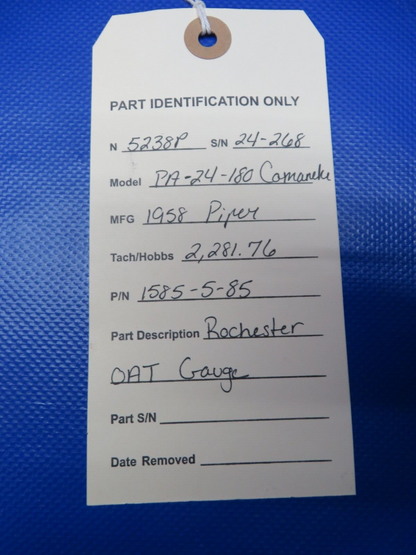 PART IDENTIFICATION ONLY
N 5238P S/N 24-268
Model PA-24-180 Comanche
MFG 1958 Piper
Tach/Hobbs 2,281.76
P/N 1585-5-85
Part Description Rochester
OAT Gauge
Part S/N
Date Removed